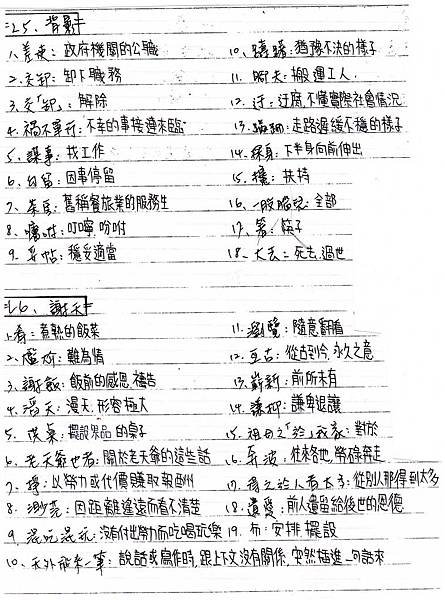 L5、背影
1、差使：政府機關的公職
2、交卸：卸下職務
3、交「卸」：解除
4、禍不單行：不幸的事接連來臨
5、謀事：找工作
6、勾留：因事停留
7、茶房：舊稱餐旅業的服務生
8、囑咐：叮嚀,吩咐
9、妥帖：穩妥適當
10、躊躇：猶豫不決的樣子
11、腳夫：搬運工人
12、迂：迂腐,不懂實際社會情況
13、蹣跚：走路遲緩不穩的樣子
14、探身：下半身向前伸出
15、攙：扶持
16、一股腦兒：全部
17、箸：筷子
18、大去：死去,過世
L6、謝天
1、肴：煮熟的飯菜
2、尷尬：難為情
3、謝飯：飯前的感恩禱告
4、滔天：漫天,形容極大
5、供桌：擺設果品的桌子
6、老天爺也者：關於老天爺的這些話
7、掙：以勞力或代價賺取報酬
8、渺茫：因距離遙遠而看不清楚
9、混吃混玩：沒有付出勞力而吃喝玩樂
10、天外飛來一筆：說話或寫作時,跟上下文沒有關係,突然插進一句話來
11、瀏覽：隨意翻看
12、亙古：從古到今,永久之意
13、嶄新：前所未有
14、謙抑：謙卑退讓
15、祖母之「於」我家：對於
16、奔波：往來各地,勞碌奔走
17、得之於人者太多：從別人那得到太多
18、遺愛：前人遺留給後世的恩德
19、布：安排,擺設